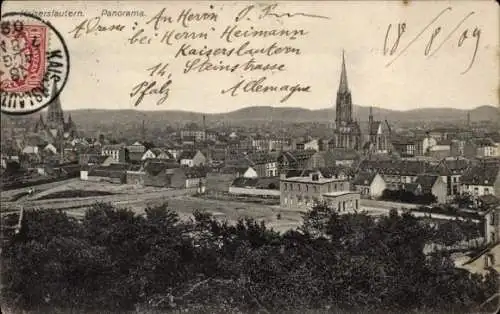 Kaiserslautern. Panorama.
An Herrn P. Fr
Adresse:
bei Herrn Heimann
Kaiserslautern
14 Steinstrasse
Pfalz Allemagne
18/8/09